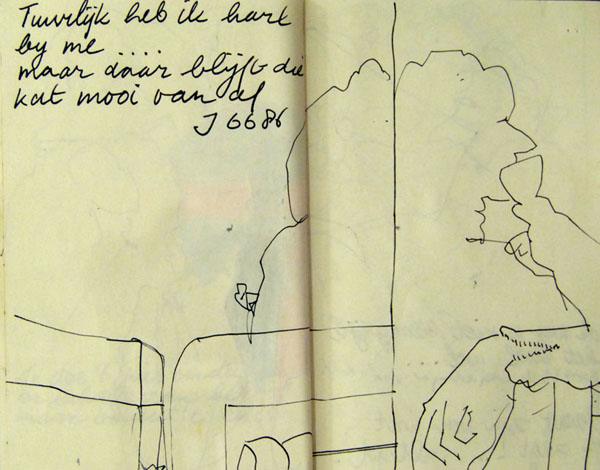 Tuurlijk heb ik hart
by me ....
maar daar blijft die
kat mooi van af
J 6686